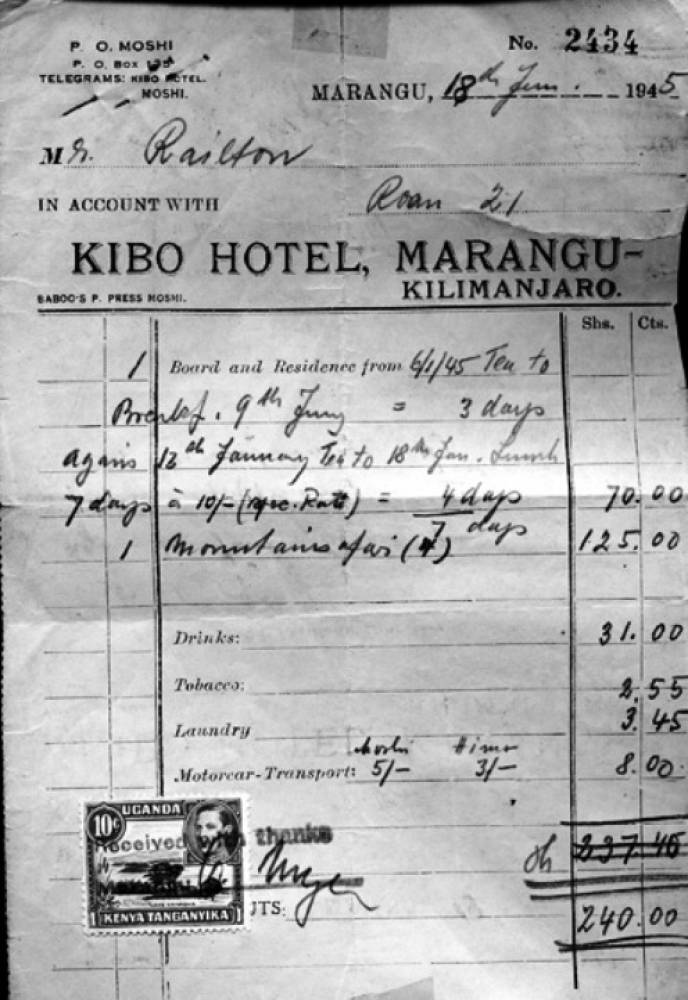 P. O. MOSHI
P. O. Box 135
TELEGRAMS: KIBO HOTEL.
MOSHI.
No. 2434
MARANGU, 18th Jan. 1945
Mr. Railton
IN ACCOUNT WITH Room 21
KIBO HOTEL, MARANGU-
KILIMANJARO.
BABOO'S P. PRESS MOSHI.
Shs. Cts.
1 Board and Residence from 6/1/45 Tea to
Breakf. 9th = 3 days
again 13th January Tea to 18th Jan. Lunch
7 days à 10/- (spec. Rate) = 4 days 70.00
7 days
1 Mountainsafari (4) 125.00
Drinks: 31.00
Tobacco: 2.55
Laundry 3.45
Moshi Himo
Motorcar-Transport: 5/- 3/- 8.00
UGANDA
10c
Received with thanks
KENYA TANGANYIKA
Sh 237.45
JTS:
240.00